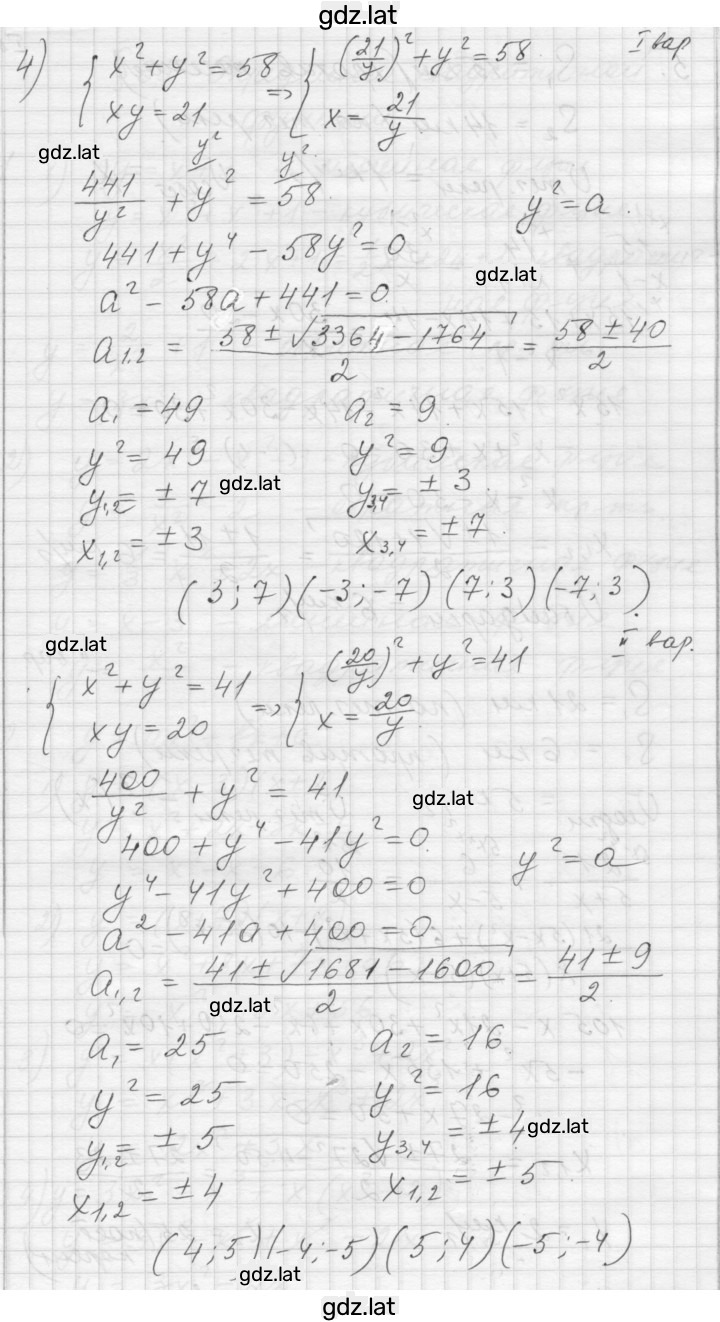 gdz.lat
I вар
4) { x² + y² = 58 ; xy = 21 => { (21/y)² + y² = 58 ; x = 21/y
gdz.lat
441/y² + y² = 58
y² y²
y² = a.
441 + y⁴ - 58y² = 0
gdz.lat
a² - 58a + 441 = 0
a₁,₂ = (58 ± √(3364 - 1764))/2 = (58 ± 40)/2
a₁ = 49 a₂ = 9
y² = 49 y² = 9
y₁,₂ = ± 7 gdz.lat y₃,₄ = ± 3
x₁,₂ = ± 3 x₃,₄ = ± 7
(3; 7) (-3; -7) (7; 3) (-7; 3).
gdz.lat
II вар.
{ x² + y² = 41 ; xy = 20 => { (20/y)² + y² = 41 ; x = 20/y
400/y² + y² = 41 gdz.lat
400 + y⁴ - 41y² = 0
y² = a
y⁴ - 41y² + 400 = 0
a² - 41a + 400 = 0
a₁,₂ = (41 ± √(1681 - 1600))/2 = (41 ± 9)/2
gdz.lat
a₁ = 25 a₂ = 16
y² = 25 y² = 16
y₁,₂ = ± 5 y₃,₄ = ± 4 gdz.lat
x₁,₂ = ± 4 x₁,₂ = ± 5
(4; 5) (-4; -5) (5; 4) (-5; -4)
gdz.lat
gdz.lat